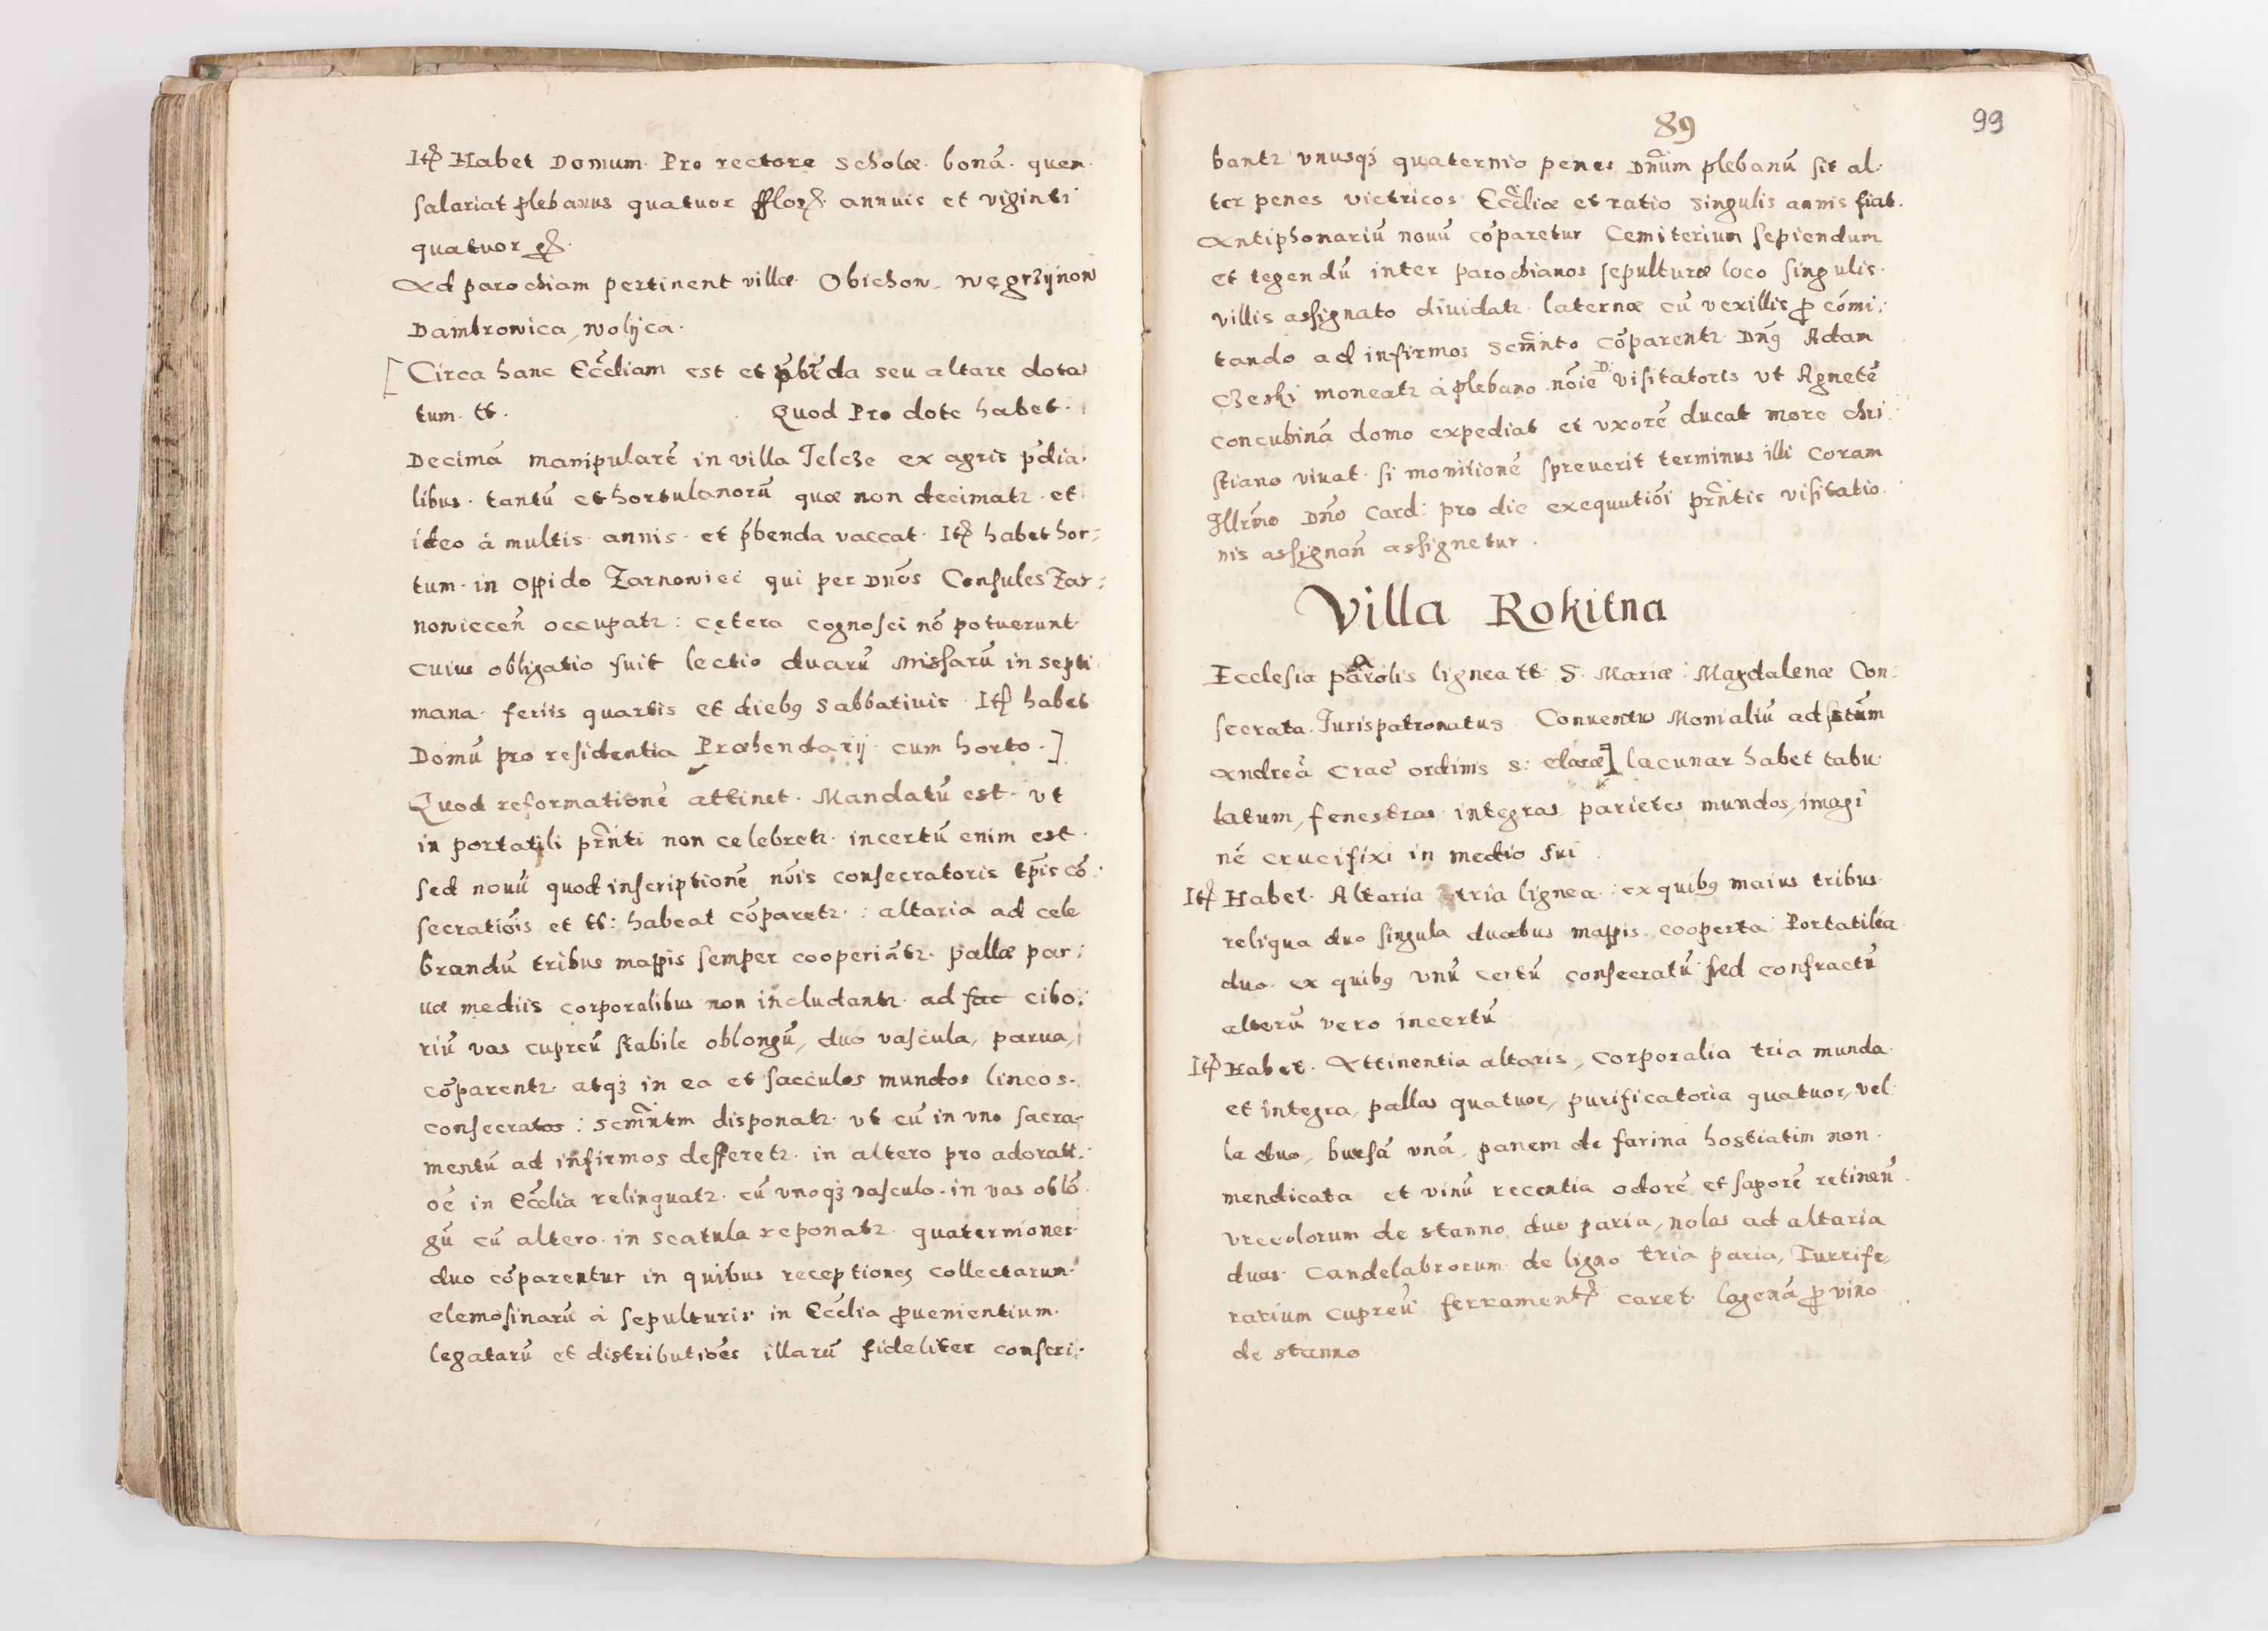 Itꝝ Habet Domum Pro rectore scholæ bonā quen
salariat plebanus quatuor fflorꝝ annuis et viginti
quatuor gꝝ
Ad parochiam pertinent villæ Obichow, Węgrzijnow
Dambrowica, Wolijca.
[Circa hanc Eccliam est et p̄bēda seu altare dota
tum tt. Quod Pro dote habet.
Decimā manipularē in villa Jelcze ex agris p̄dia
libus tantū et hortulanorū quæ non decimatz et
ideo á multis annis et p̄benda vaccat Itꝝ habet hor:
tum in oppido Zarnowiec qui per Dnōs Consules Zar:
nowiecen̄ occupatz: cętera cognosci nō potuerunt
cuius obligatio fuit lectio duarū missarū in septi
mana feriis quartis et diebꝰ Sabbativis Itꝝ habet
Domū pro residentia Præbendarij cum horto.]
Quod reformationē attinet. Mandatū est ut
in portatili prn̄ti non celebretz incertū enim est
sed novū quod inscriptionē nōis consecratoris tp̄is cō:
secratiōis et tt: habeat cōparetz: altaria ad cele
brandū tribus mappis semper cooperiātz. pallæ par:
uæ mediis corporalibus non includantz ad sac cibo:
riū vas cupreū stabile oblongū, duo vascula, parua,
cōparentz atqꝫ in ea et sacculos mundos lineos
consecratos: scm̄ntm disponatz ut cū in vno sacra
mentū ad infirmos defferetz in altero pro adoratt:
oē in Ecclia relinquatz cū vnoqꝫ vasculo in vas oblō
gū cū altero in scatula reponatz quaterniones
duo cōparentur in quibus receptiones collectarum
elemosinarū á sepulturis in Ecclia ꝓvenientium
legatarū et distributiōes illarū fideliter conscri:
89
99
bantz vnusqꝫ quaternio penes Dnūm plebanū sit al
ter penes victricos Eccliæ et ratio singulis annis fiat.
Antiphonariū novū cōparetur Cemiterium sepiendum
et tegendū inter parochianos sepulturæ loco singulis
villis assignato dividatz laternæ cū vexillis ꝓ cōmi:
tando ad infirmos scm̄nto cōparentz Dnꝰ Adam
Czeski moneatz á plebano nōie D. visitatoris ut Agnetē
concubinā domo expediat et uxorē ducat more chri
stiano vivat si monitionē spreverit terminus illi Coram
Illrm̄o Dnō Card: pro die exequutiōi prn̄tis visitatio
nis assignan̄ assignetur.
Villa Rokitna
Ecclesia parōlis lignea tt S. Mariæ Magdalenæ Con:
secrata Jurispatronatus Conventu Monialiū ad stūm
Andreā Crac̄ ordinis S: Claræ] lacunar habet tabu
latum, fenestras integras parietes mundos, imagi
nē crucifixi in medio sui
Itꝝ Habet Altaria tria lignea: ex quibꝰ maius tribus
reliqua duo singula duabus mappis cooperta Portatilia
duo ex quibꝰ vnū certū consecratū sed confractū
alterū vero incertū
Itꝝ Habet. Attinentia altaris, Corporalia tria munda
et integra, pallas quatuor, purificatoria quatuor, vel
la duo, bursā vnā, panem de farina hostiatim non
mendicata et vinū recentia odorē et saporē retinen̄
vrceolorum de stanno duo paria, nolas ad altaria
duas Candelabrorum de ligno tria paria, Turrife
rarium cupreū ferramentꝝ caret lagenā ꝓ vino
de stanno